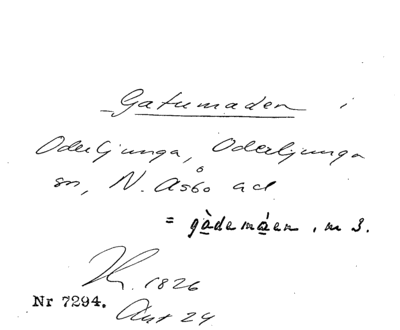 Gatumaden i
Oderljunga, Oderljunga
sn, N. Åsbo hd
= gàdemáen, m 3.
1826
Nr 7294. Avt 24